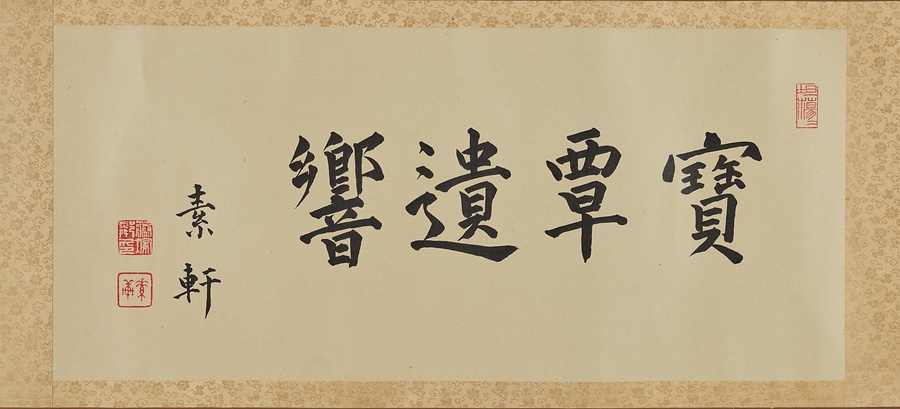 寶覃遺響
素軒